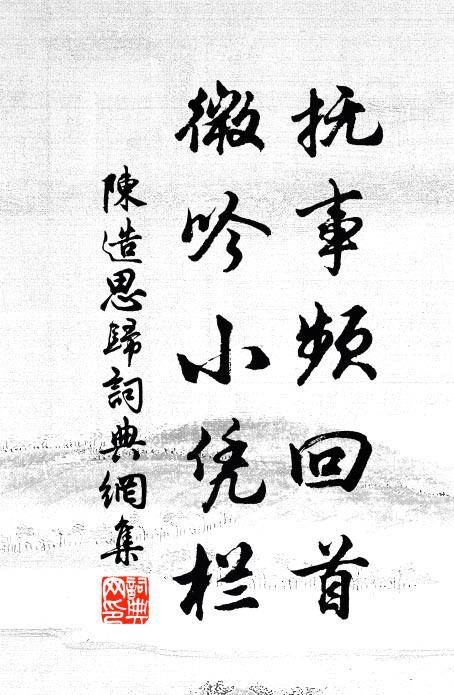 抚事频回首
微吟小凭栏
陳造思歸詞典網集
詞典网印